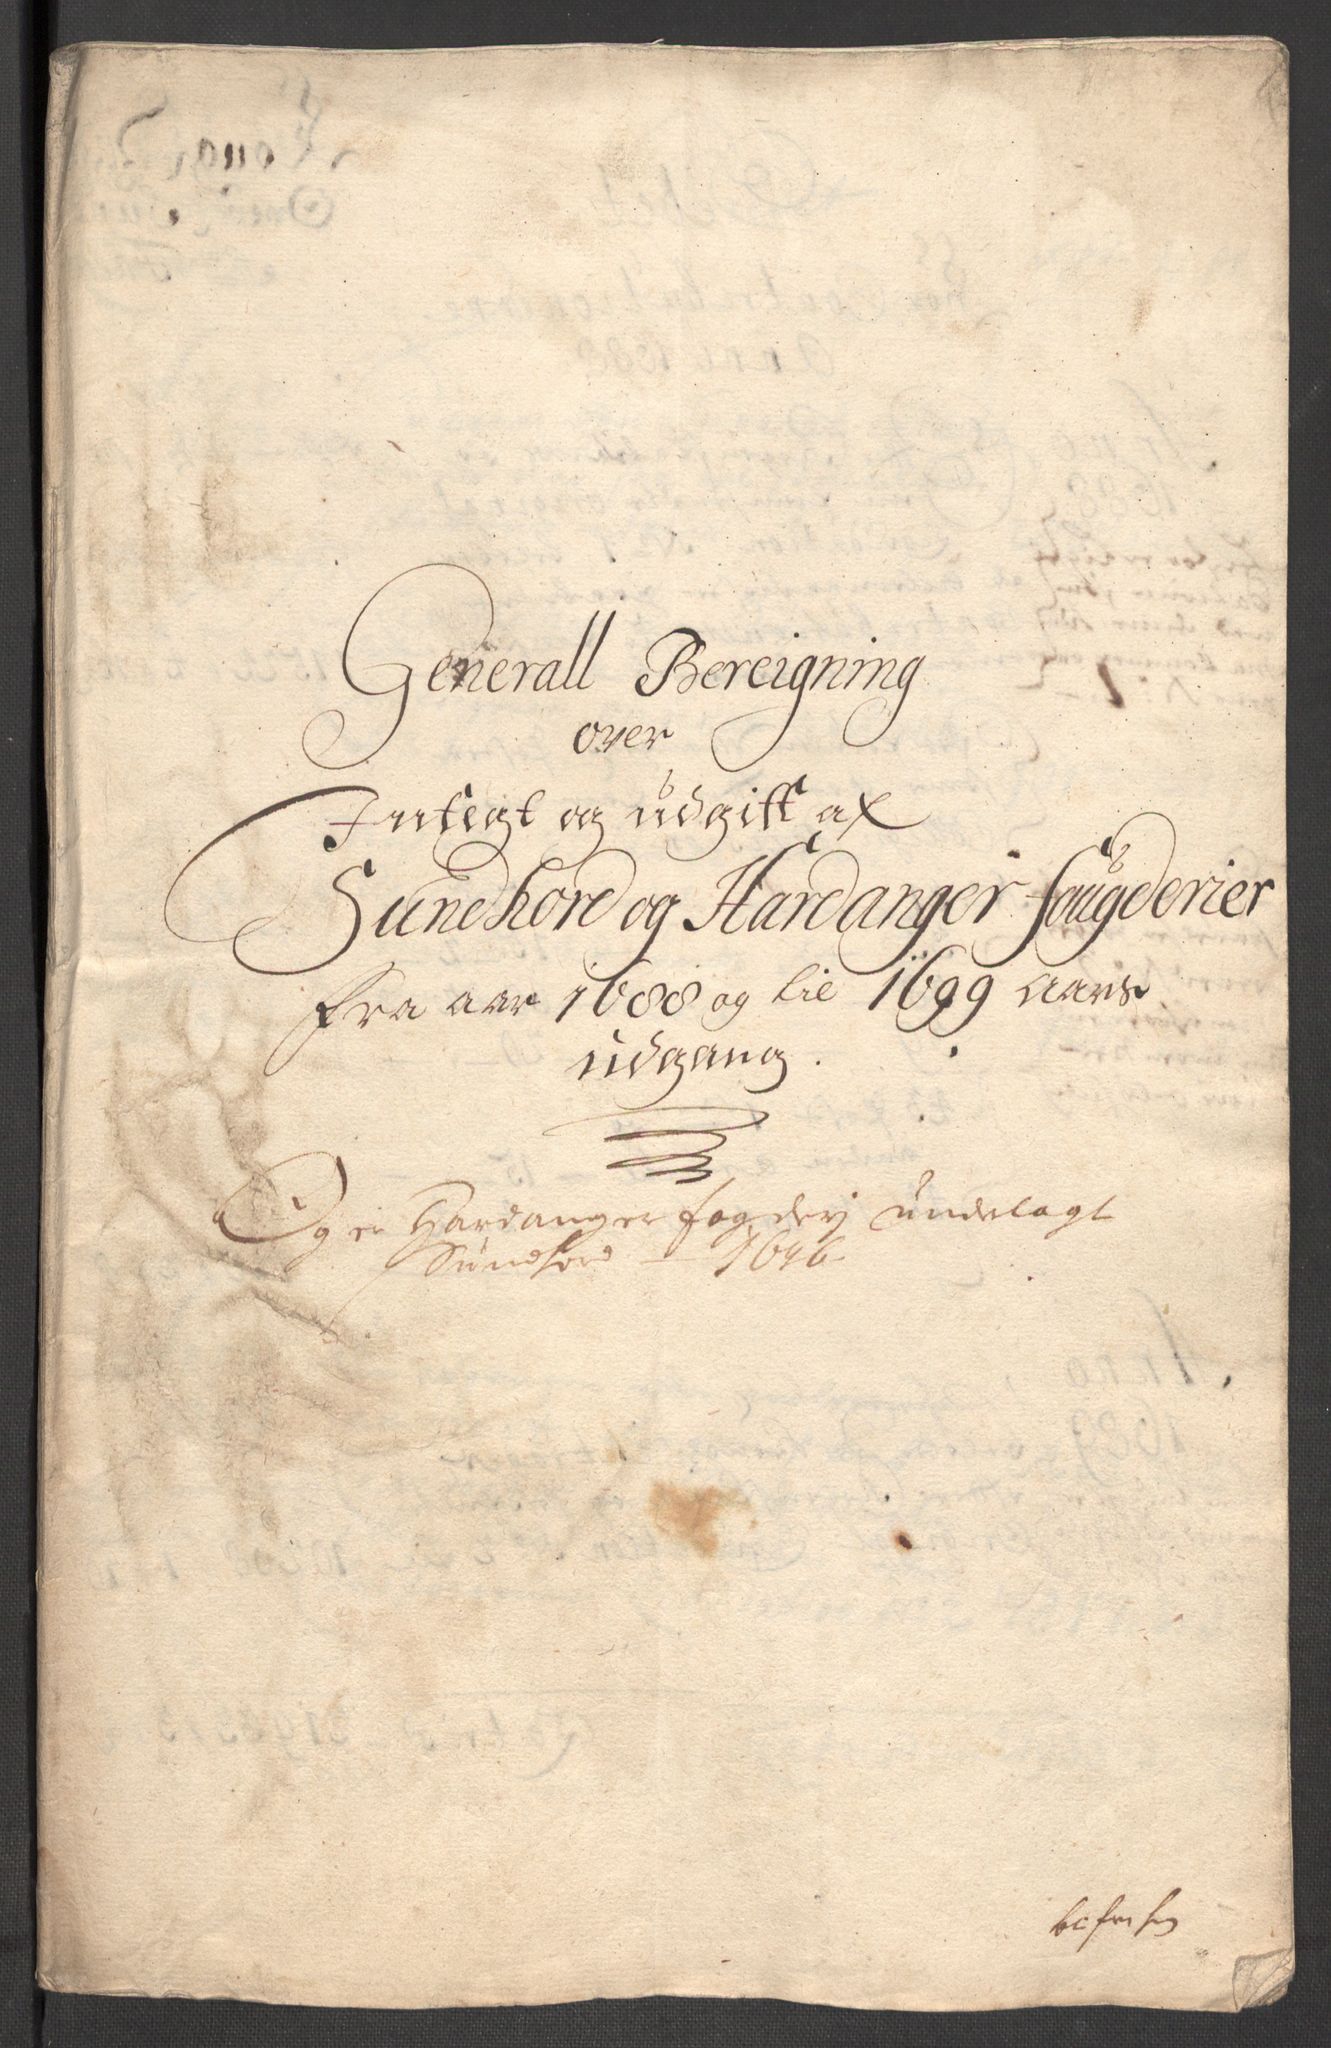 Generall Bereigning
over
Indtegt og udgift af
Sundhord og Hardanger fougderier
fra aar 1688 og til 1699 aars
udgang.
Og er Hardanger fogderj underlagt
Sundhord – 1696